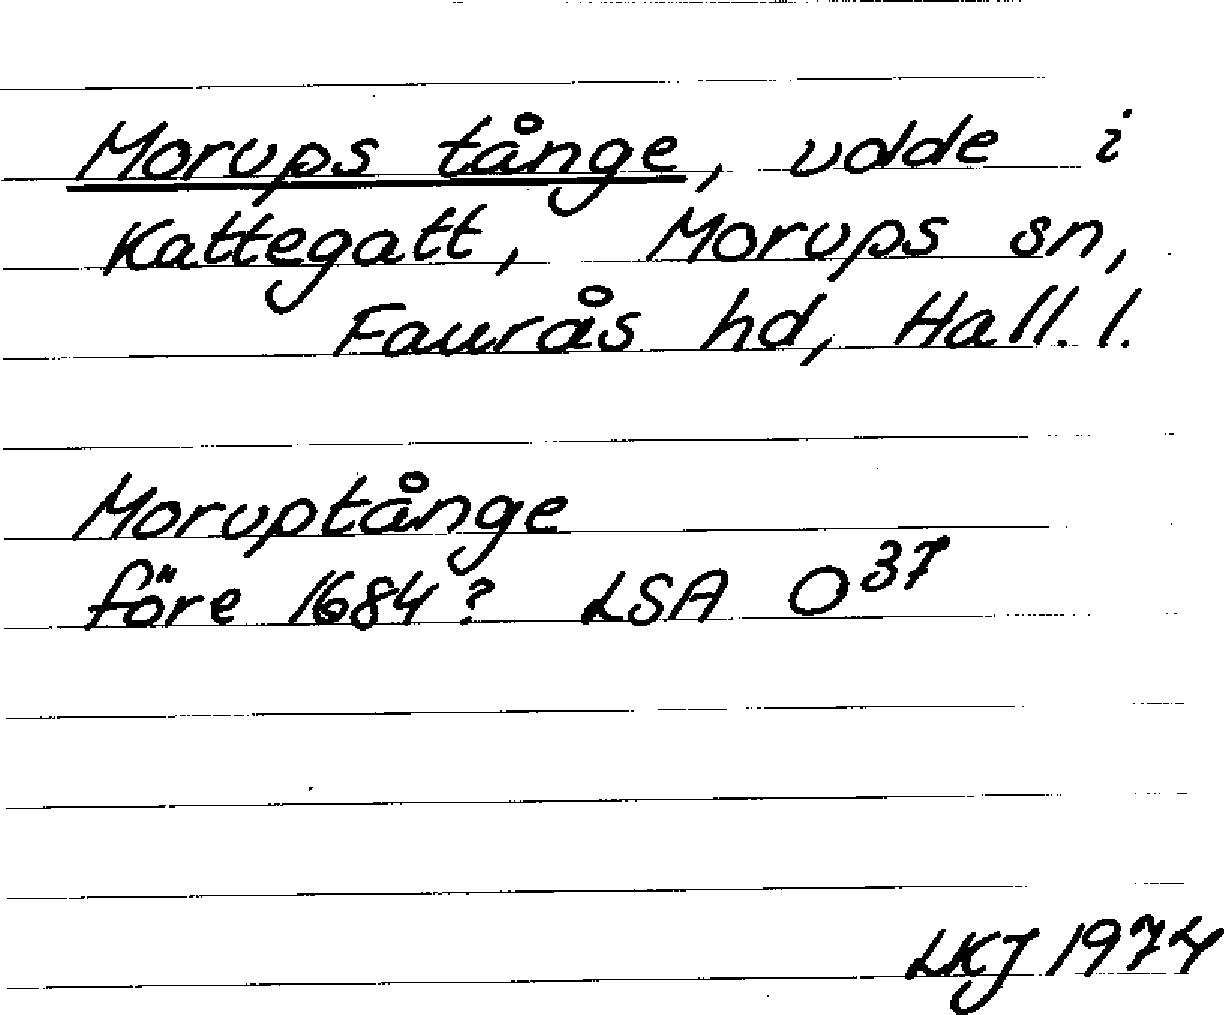 Morups tånge, udde i
Kattegatt, Morups sn,
Faurås hd, Hall. l.
Moruptånge
före 1684? LSA O37
LKJ 1974